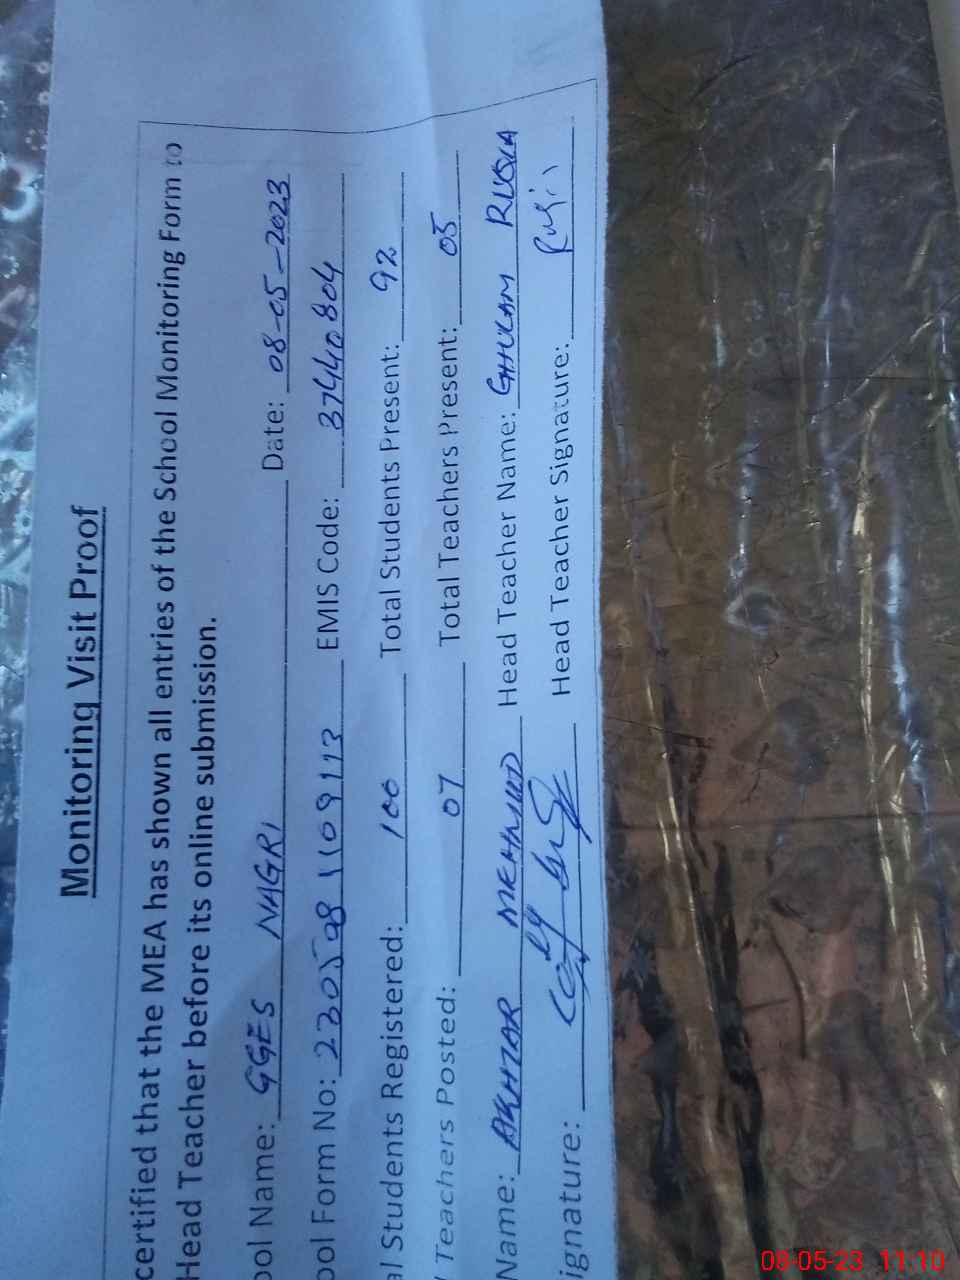 Monitoring Visit Proof
certified that the MEA has shown all entries of the School Monitoring Form to
Head Teacher before its online submission.
ool Name: GGES NAGRI Date: 08-05-2023
ool Form No: 2305081109113 EMIS Code: 37440804
al Students Registered: 100 Total Students Present: 92
l Teachers Posted: 07 Total Teachers Present: 05
Name: AKHTAR MEHMUD Head Teacher Name: GHULAM RUSLA
ignature: Head Teacher Signature:
08-05-23 11:10